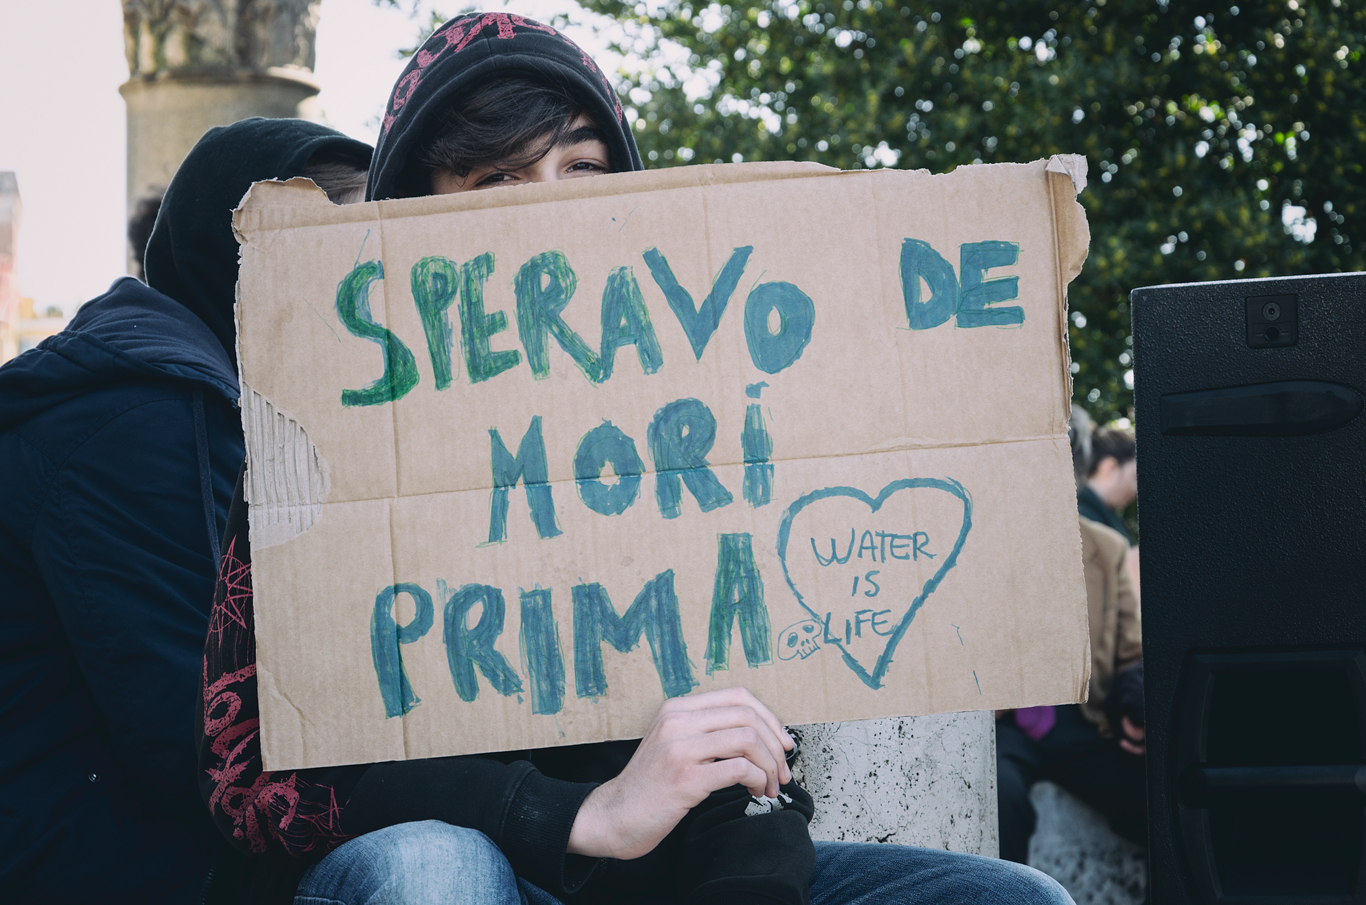 SPERAVO DE
MORÍ
PRIMA
WATER
IS
LIFE